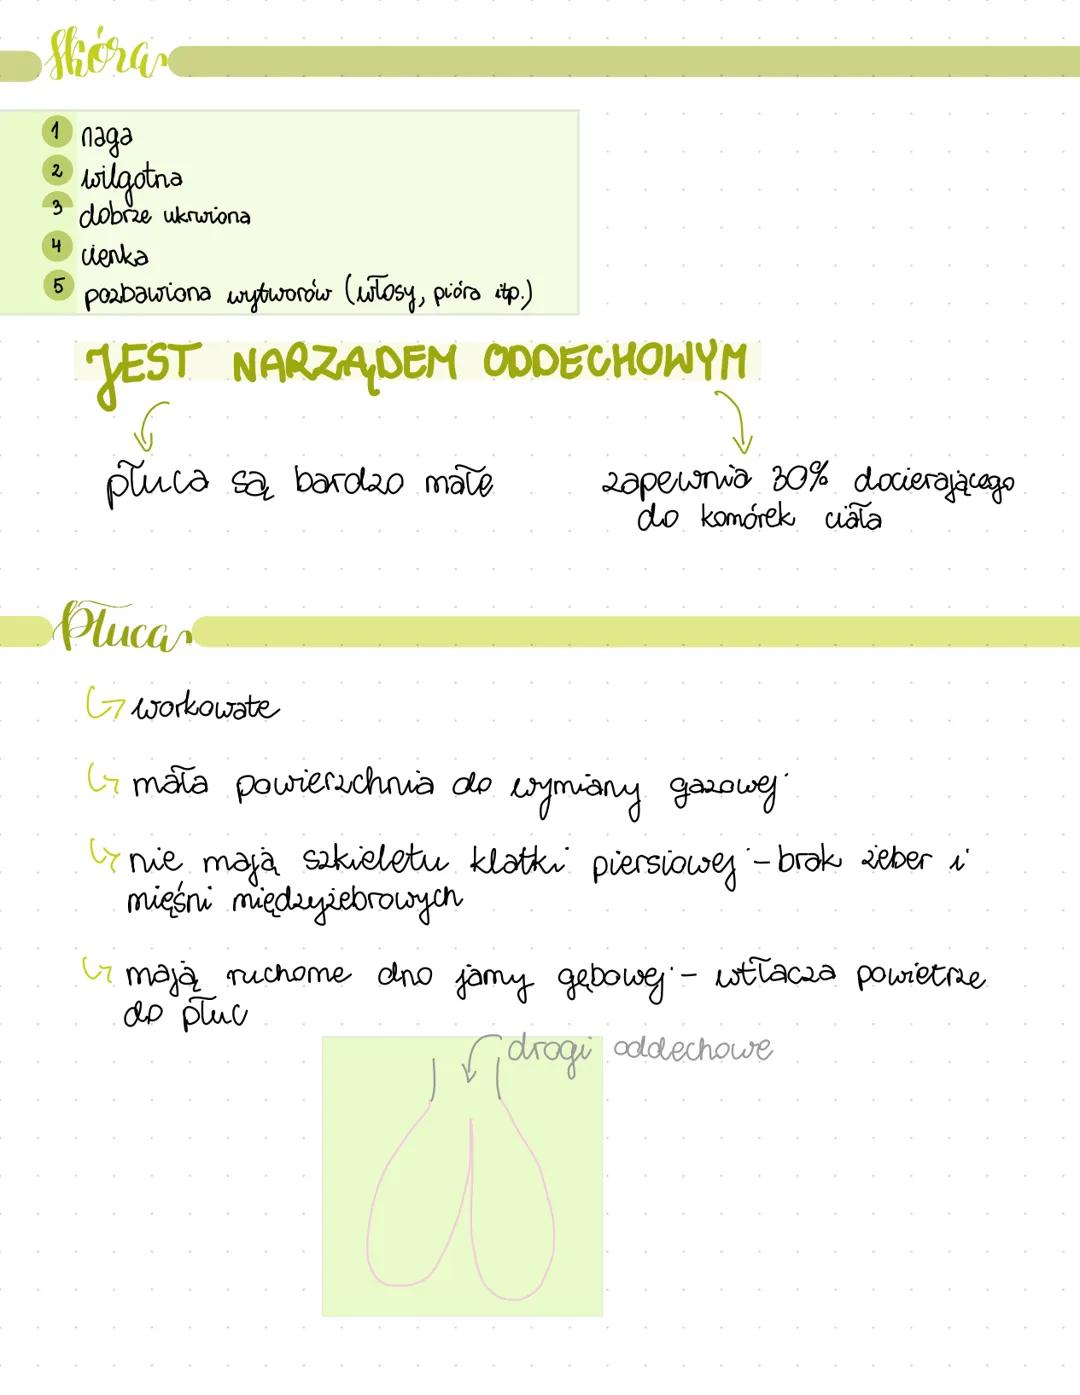 Skóra
1 naga
2 wilgotna
3 dobrze ukrwiona
4 cienka
5 pozbawiona wytworów (włosy, pióra itp.)
JEST NARZĄDEM ODDECHOWYM
płuca są bardzo małe
zapewnia 30% docierającego
do komórek ciała
Płuca
workowate
mała powierzchnia do wymiany gazowej
nie mają szkieletu klatki piersiowej - brak żeber i
mięśni międzyżebrowych
mają ruchome dno jamy gębowej - wtłacza powietrze
do płuc
drogi oddechowe